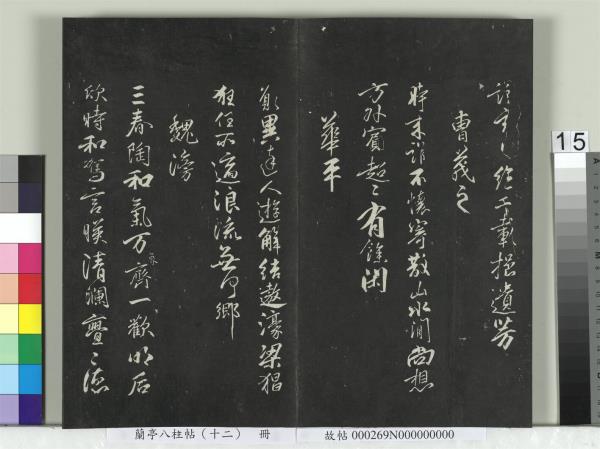 絕千載挹遺芳
曹茂之
時來誰不懷寄散山水間尚想
方外賓超〻有餘閑
華平
達人遊解結遨濠梁猖
狂任所適浪流無何鄉
魏滂
三春陶和氣万齊一歡明后
欣時和駕言暎清瀾亹〻德
15
蘭亭八柱帖(十二) 冊
故帖 000269N000000000